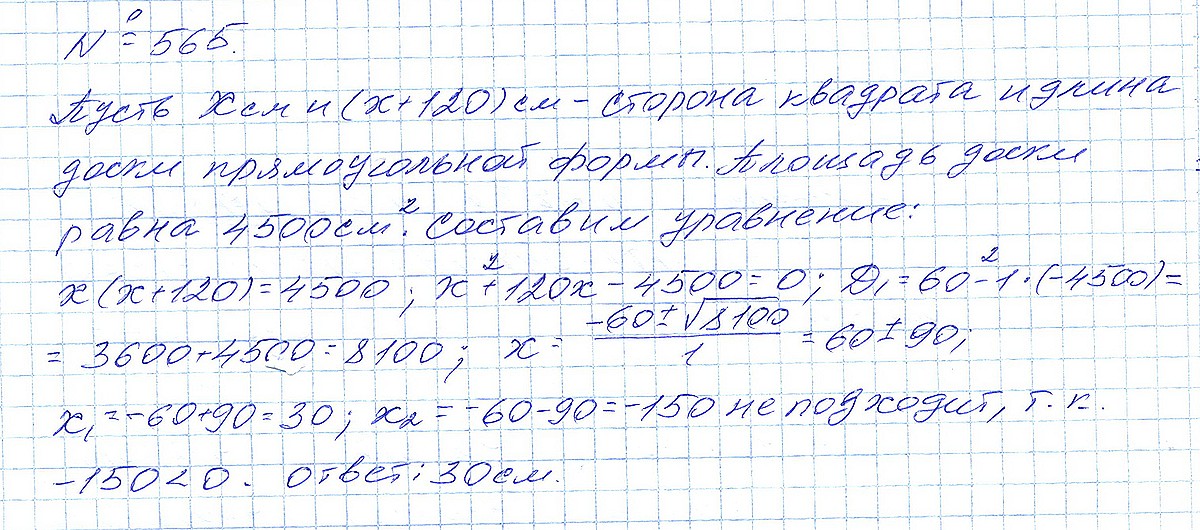 № = 565.
Пусть x см и (x+120) см – сторона квадрата и длина
доски прямоугольной формы. Площадь доски
равна 4500см². Составим уравнение:
x(x+120)=4500; x²+120x-4500=0; D₁=60²-1·(-4500)=
=3600+4500=8100; x= (-60±√8100)/1 = 60±90;
x₁=-60+90=30; x₂=-60-90=-150 не подходит, т.к.
-150<0. Ответ: 30см.